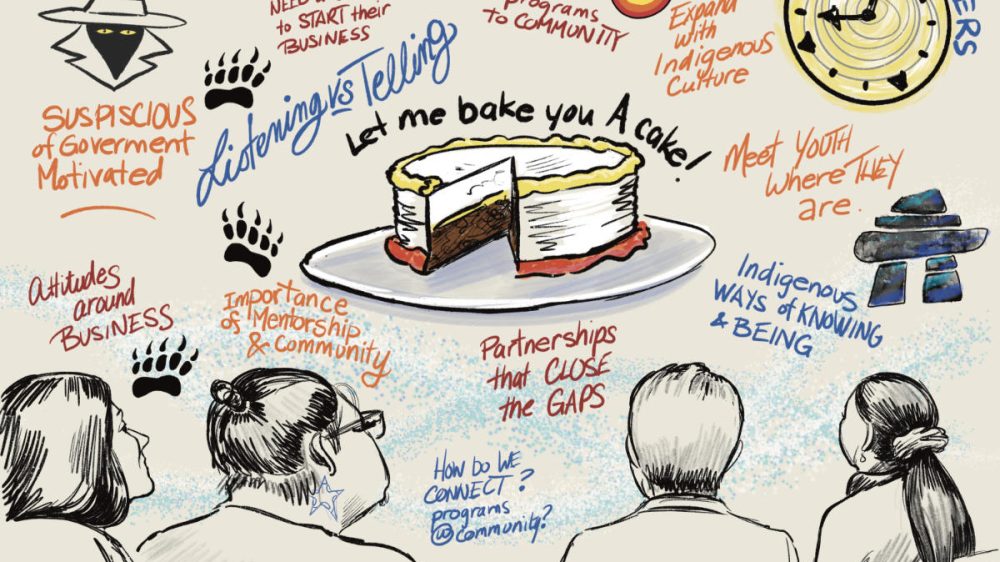 to START their
BUSINESS
programs
to COMMUNITY
Expand
with
Indigenous
Culture
ERS
SUSPISCIOUS
of Goverment
Motivated
Listening vs Telling
Let me bake you A cake!
Meet YOUTH
where THEY
are.
Attitudes
around
BUSINESS
Importance
of Mentorship
& Community
Indigenous
WAYS of KNOWING
& BEING
Partnerships
that CLOSE
the GAPS
HOW DO WE
CONNECT?
programs
@community?